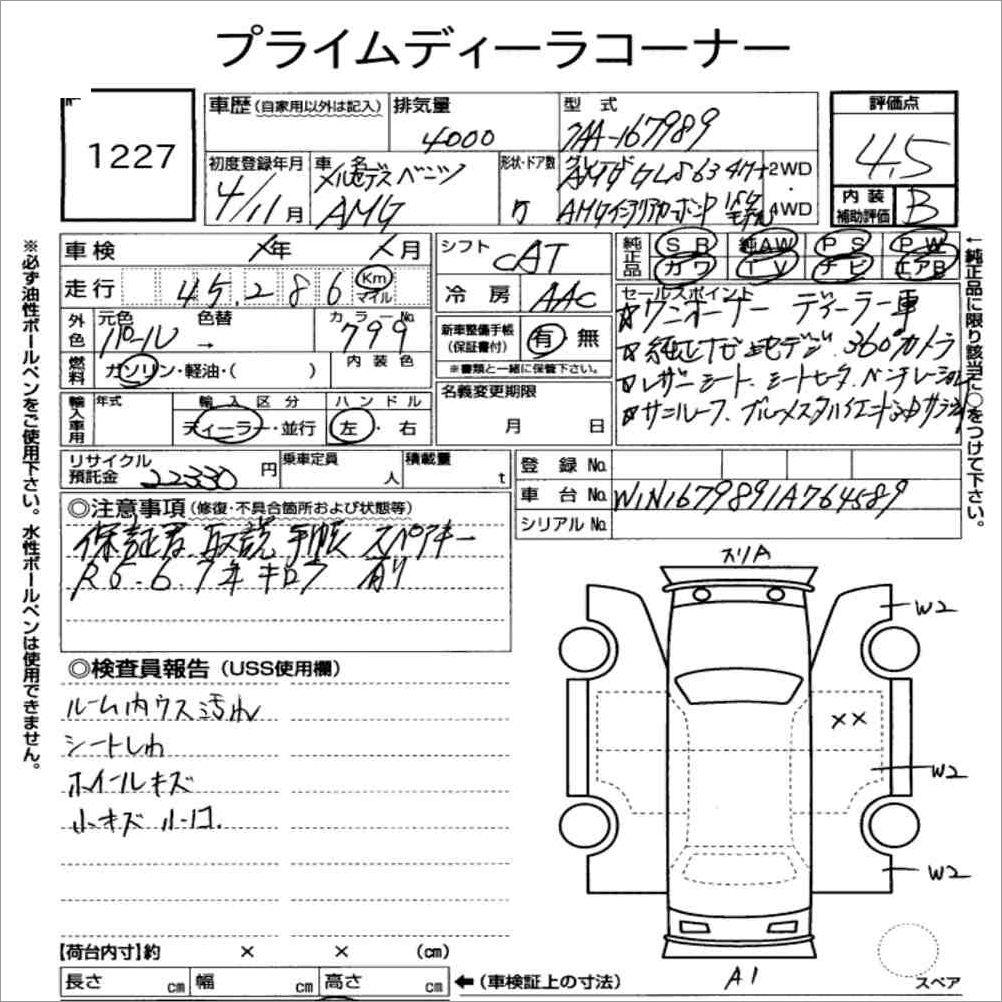 プライムディーラコーナー
1227
車歴(自家用以外は記入)
排気量
4000
型 式
7AA-167989
評価点
4.5
初度登録年月
4/11月
車 名
メルセデスベンツ
AMG
形状・ドア数
グレード
AMG GLS63 4M+
AMGインテリアカーボンP
2WD
4WD
内装
補助評価
B
車検
年
月
シフト
CAT
純正品
SR
純AW
PS
PW
カワ
TV
ナビ
エアB
走行
45,286
Km
マイル
冷房
AAC
セールスポイント
☆ワンオーナー ディーラー車
☆純正ナビ 地デジ 360°カメラ
☆レザーシート、シートヒータ、ベンチレーション
☆サンルーフ、ブルメスタハイエンド3Dサラウンド
外色
元色
パール
色替
→
カラーNo.
799
新車整備手帳
(保証書付)
有 無
※書類と一緒に保管下さい。
燃料
ガソリン・軽油・( )
内装色
名義変更期限
月 日
輸入車用
年式
輸入区分
ディーラー・並行
ハンドル
左・右
リサイクル
預託金
22330円
乗車定員
人
積載量
t
登録No.
車台No.
W1N1679891A764589
シリアルNo.
◎注意事項(修復・不具合箇所および状態等)
保証書 取説 手帳 スペアキー
R5.6.7年キロク 有り
※必ず油性ボールペンをご使用下さい。水性ボールペンは使用できません。
←純正品に限り該当に○をつけて下さい。
◎検査員報告(USS使用欄)
ルーム内ウス汚れ
シートしわ
ホイールキズ
小キズ 小凹.
スリA
W2
××
W2
W2
A1
スペア
【荷台内寸】約 × × (cm)
長さ cm 幅 cm 高さ cm ←(車検証上の寸法)